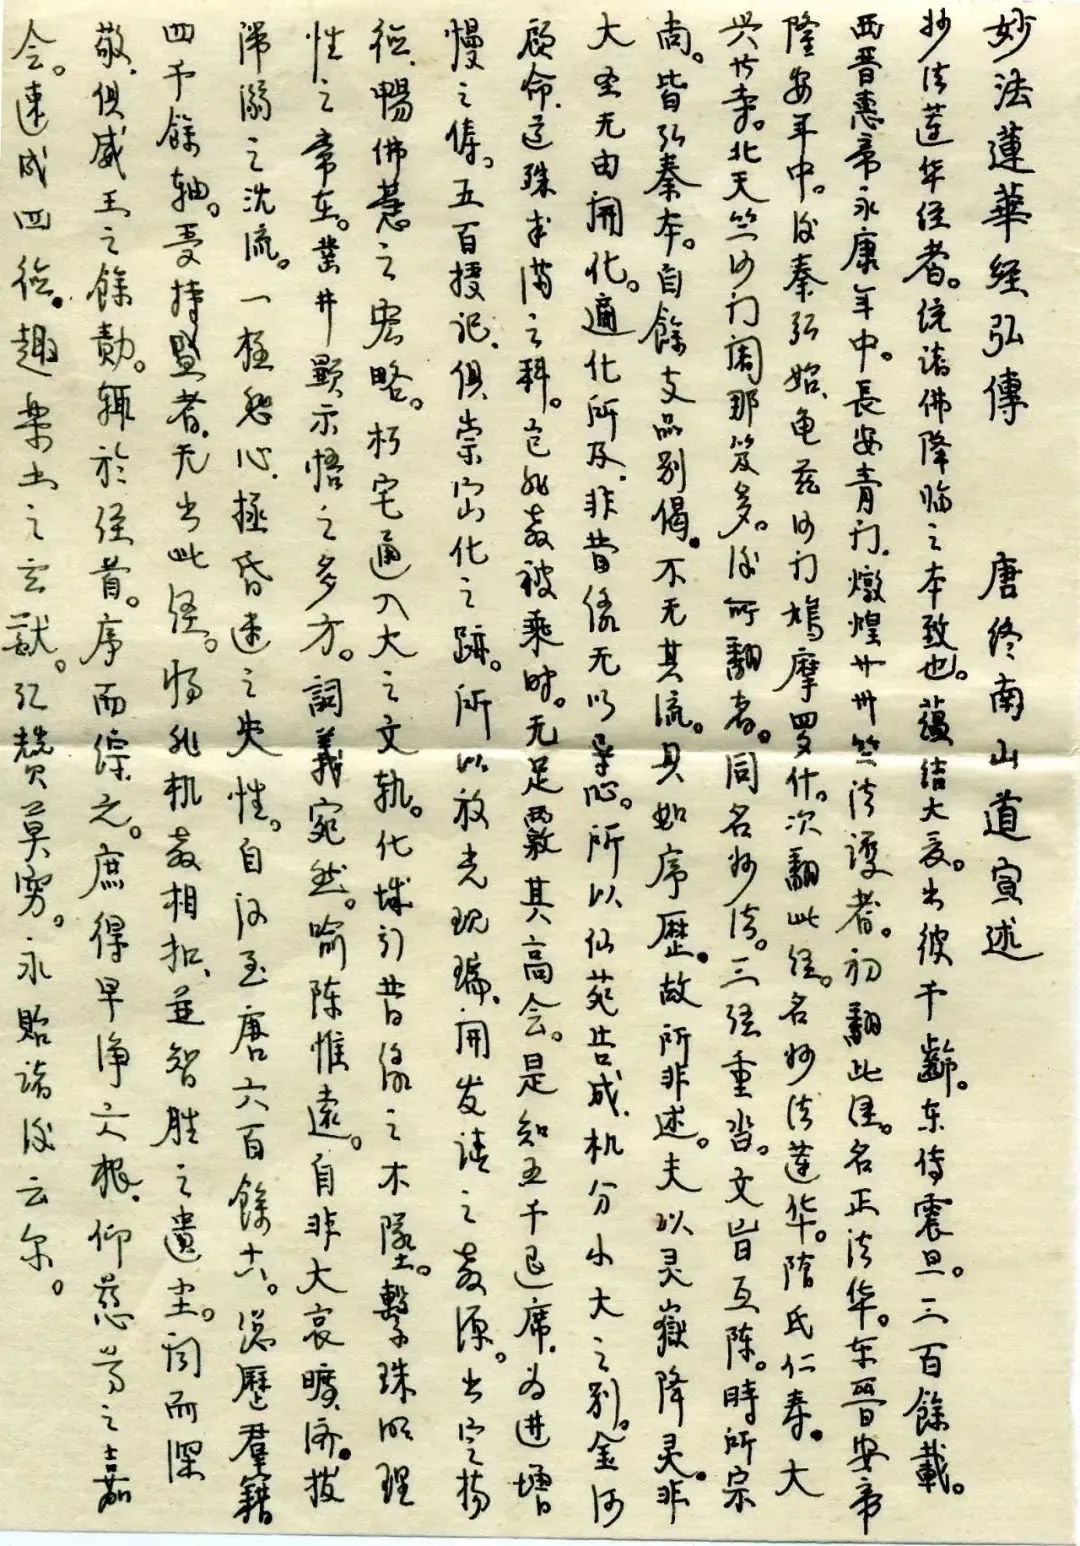 妙法蓮華经弘傳　唐终南山道宣述
妙法莲华经者。统诸佛降临之本致也。蕴结大夏。出彼千齡。东传震旦。三百餘載。
西晋惠帝永康年中。長安青门。燉煌卅卅竺法護者。初翻此经。名正法华。东晋安帝
隆安年中。后秦弘始、龟茲沙门鳩摩罗什。次翻此经。名妙法莲华。隋氏仁寿。大
兴善寺。北天竺沙门闍那笈多。后所翻者。同名妙法。三經重沓。文旨互陈。時所宗
尚。皆弘秦本。自餘支品别偈。不无其流。具如序歷。故所非述。夫以灵嶽降灵。非
大圣无由開化。適化所及、非昔缘无以导心。所以仙苑告成、机分小大之别。金河
顾命、道殊半满之科。岂非教被乘时。无足覈其高会。是知五千退席、为进增
慢之俦。五百授记、俱崇密化之跡。所以放光现瑞、開发请之教源。出定扬
德、暢佛慧之宏略。朽宅通入大之文轨。化城引昔缘之不墜。繫珠明理
性之常在。凿井顯示悟之多方。詞義宛然。喻陈惟遠。自非大哀曠济。拔
滞溺之沉流。一極悲心、拯昏迷之失性。自汉至唐六百餘十六。總歷羣籍
四千餘轴。受持盛者、无出此经。将非机教相扣、並智胜之遺尘。闻而深
敬、俱威王之餘勣。輒於经首。序而综之。庶得早净六根、仰慈尊之嘉
会。速成四德。趣樂土之玄猷。弘赞莫穷。永貽諸后云尔。